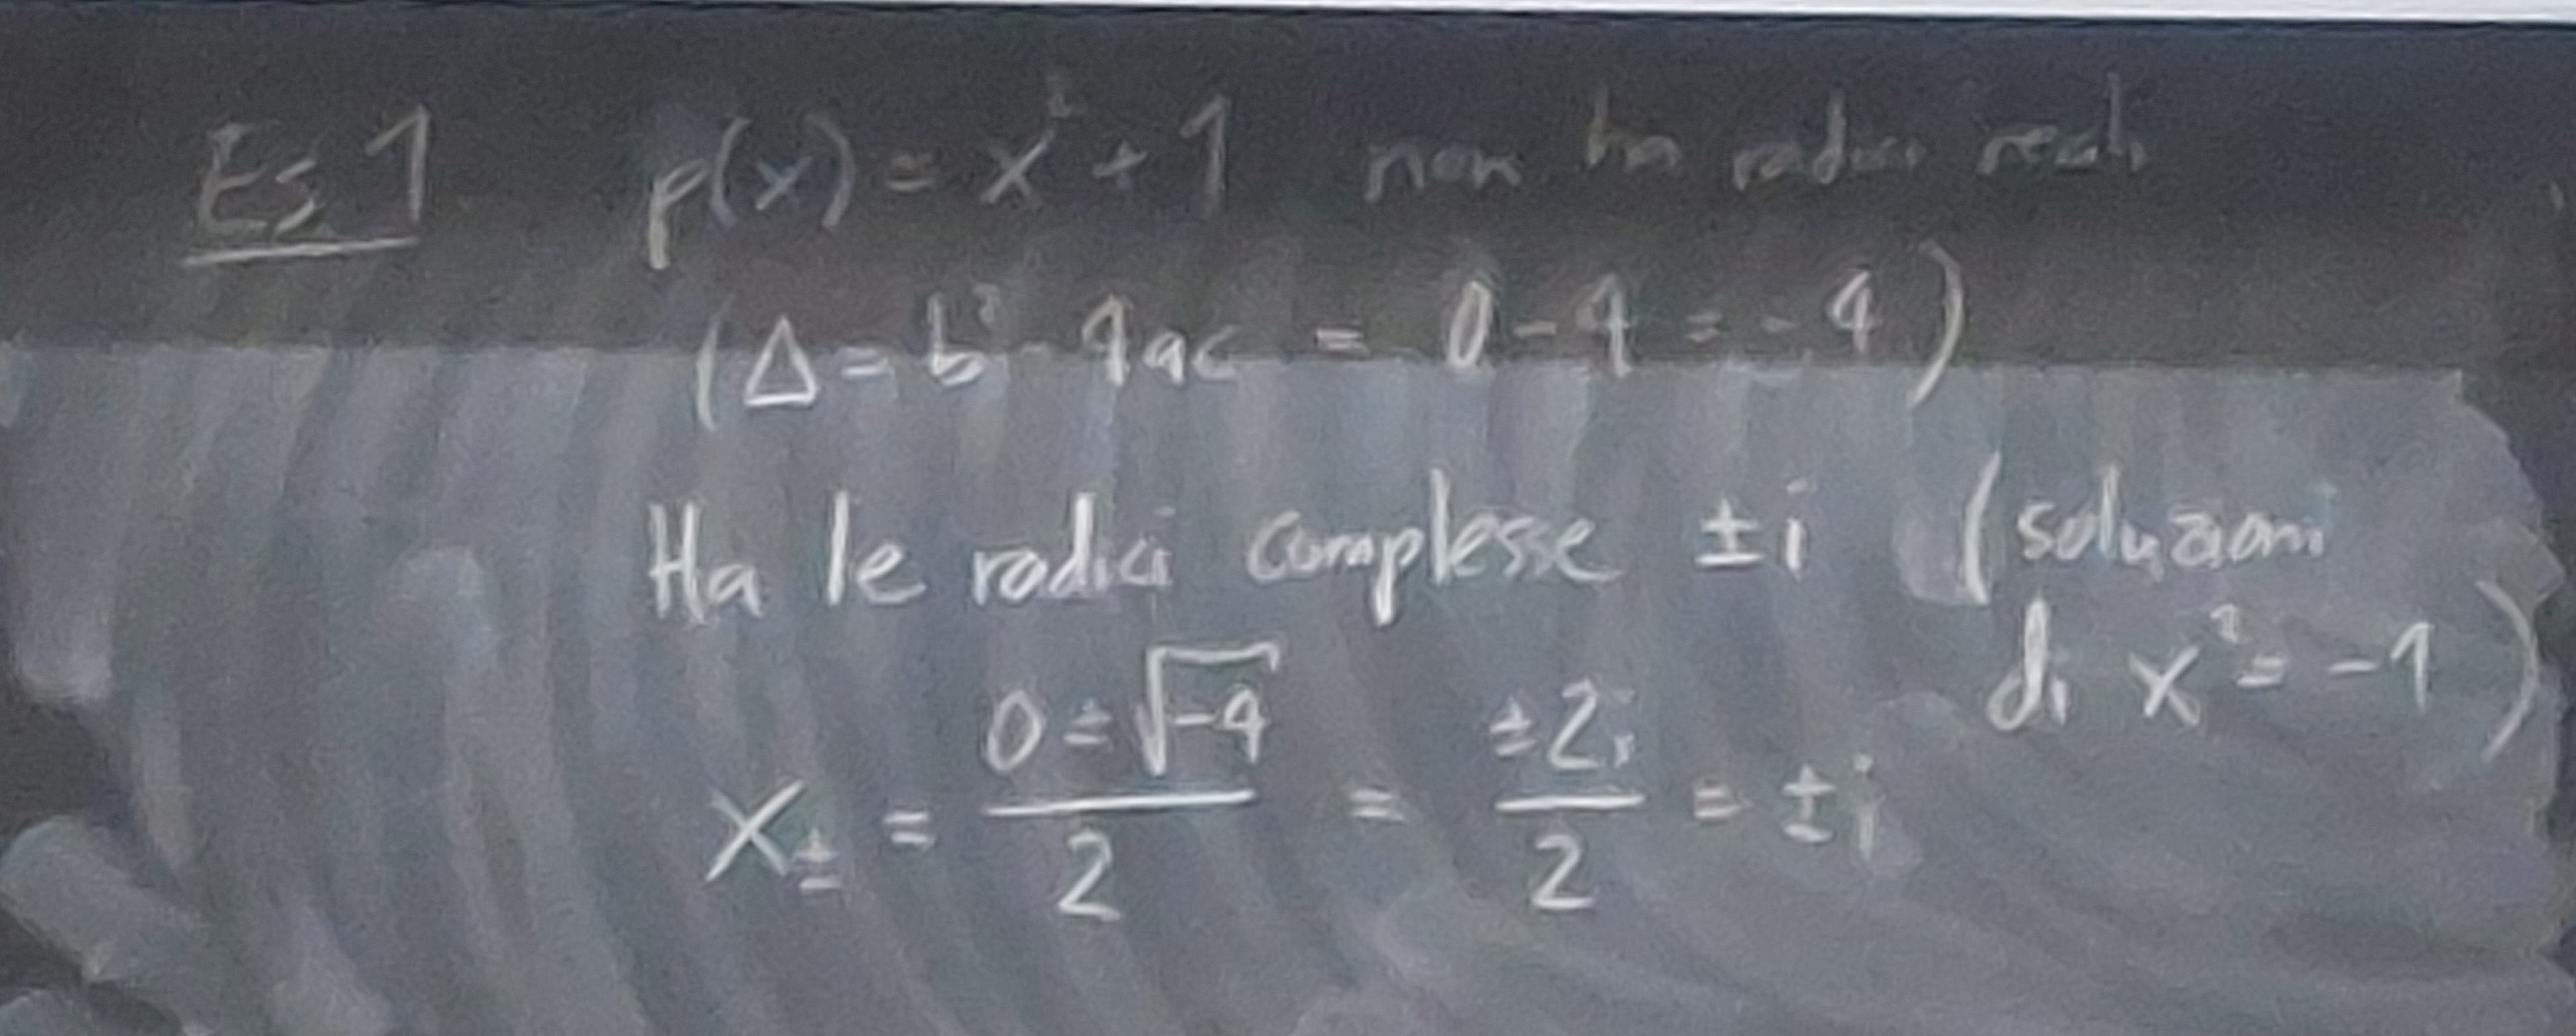 Es 1 p(x) = x² + 1 non ha radici reali
(Δ = b² - 4ac = 0 - 4 = -4)
Ha le radici complesse ±i (soluzioni
di x² = -1)
x± = (0 ± √-4)/2 = ±2i/2 = ±i